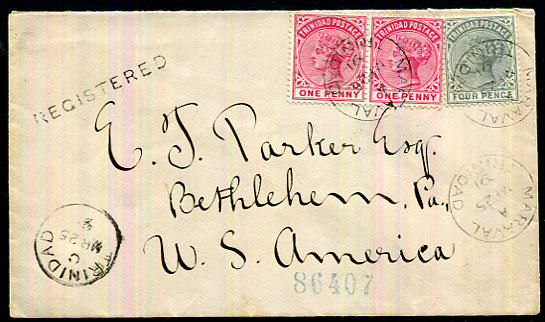 TRINIDAD POSTAGE
ONE PENNY
TRINIDAD POSTAGE
ONE PENNY
TRINIDAD POSTAGE
FOUR PENCE
REGISTERED
MARAVAL
TRINIDAD
E. J. Parker Esq.
Bethlehem, Pa.,
U. S. America
MARAVAL
A
MR 25
91
TRINIDAD
TRINIDAD
C
MR 25
86407